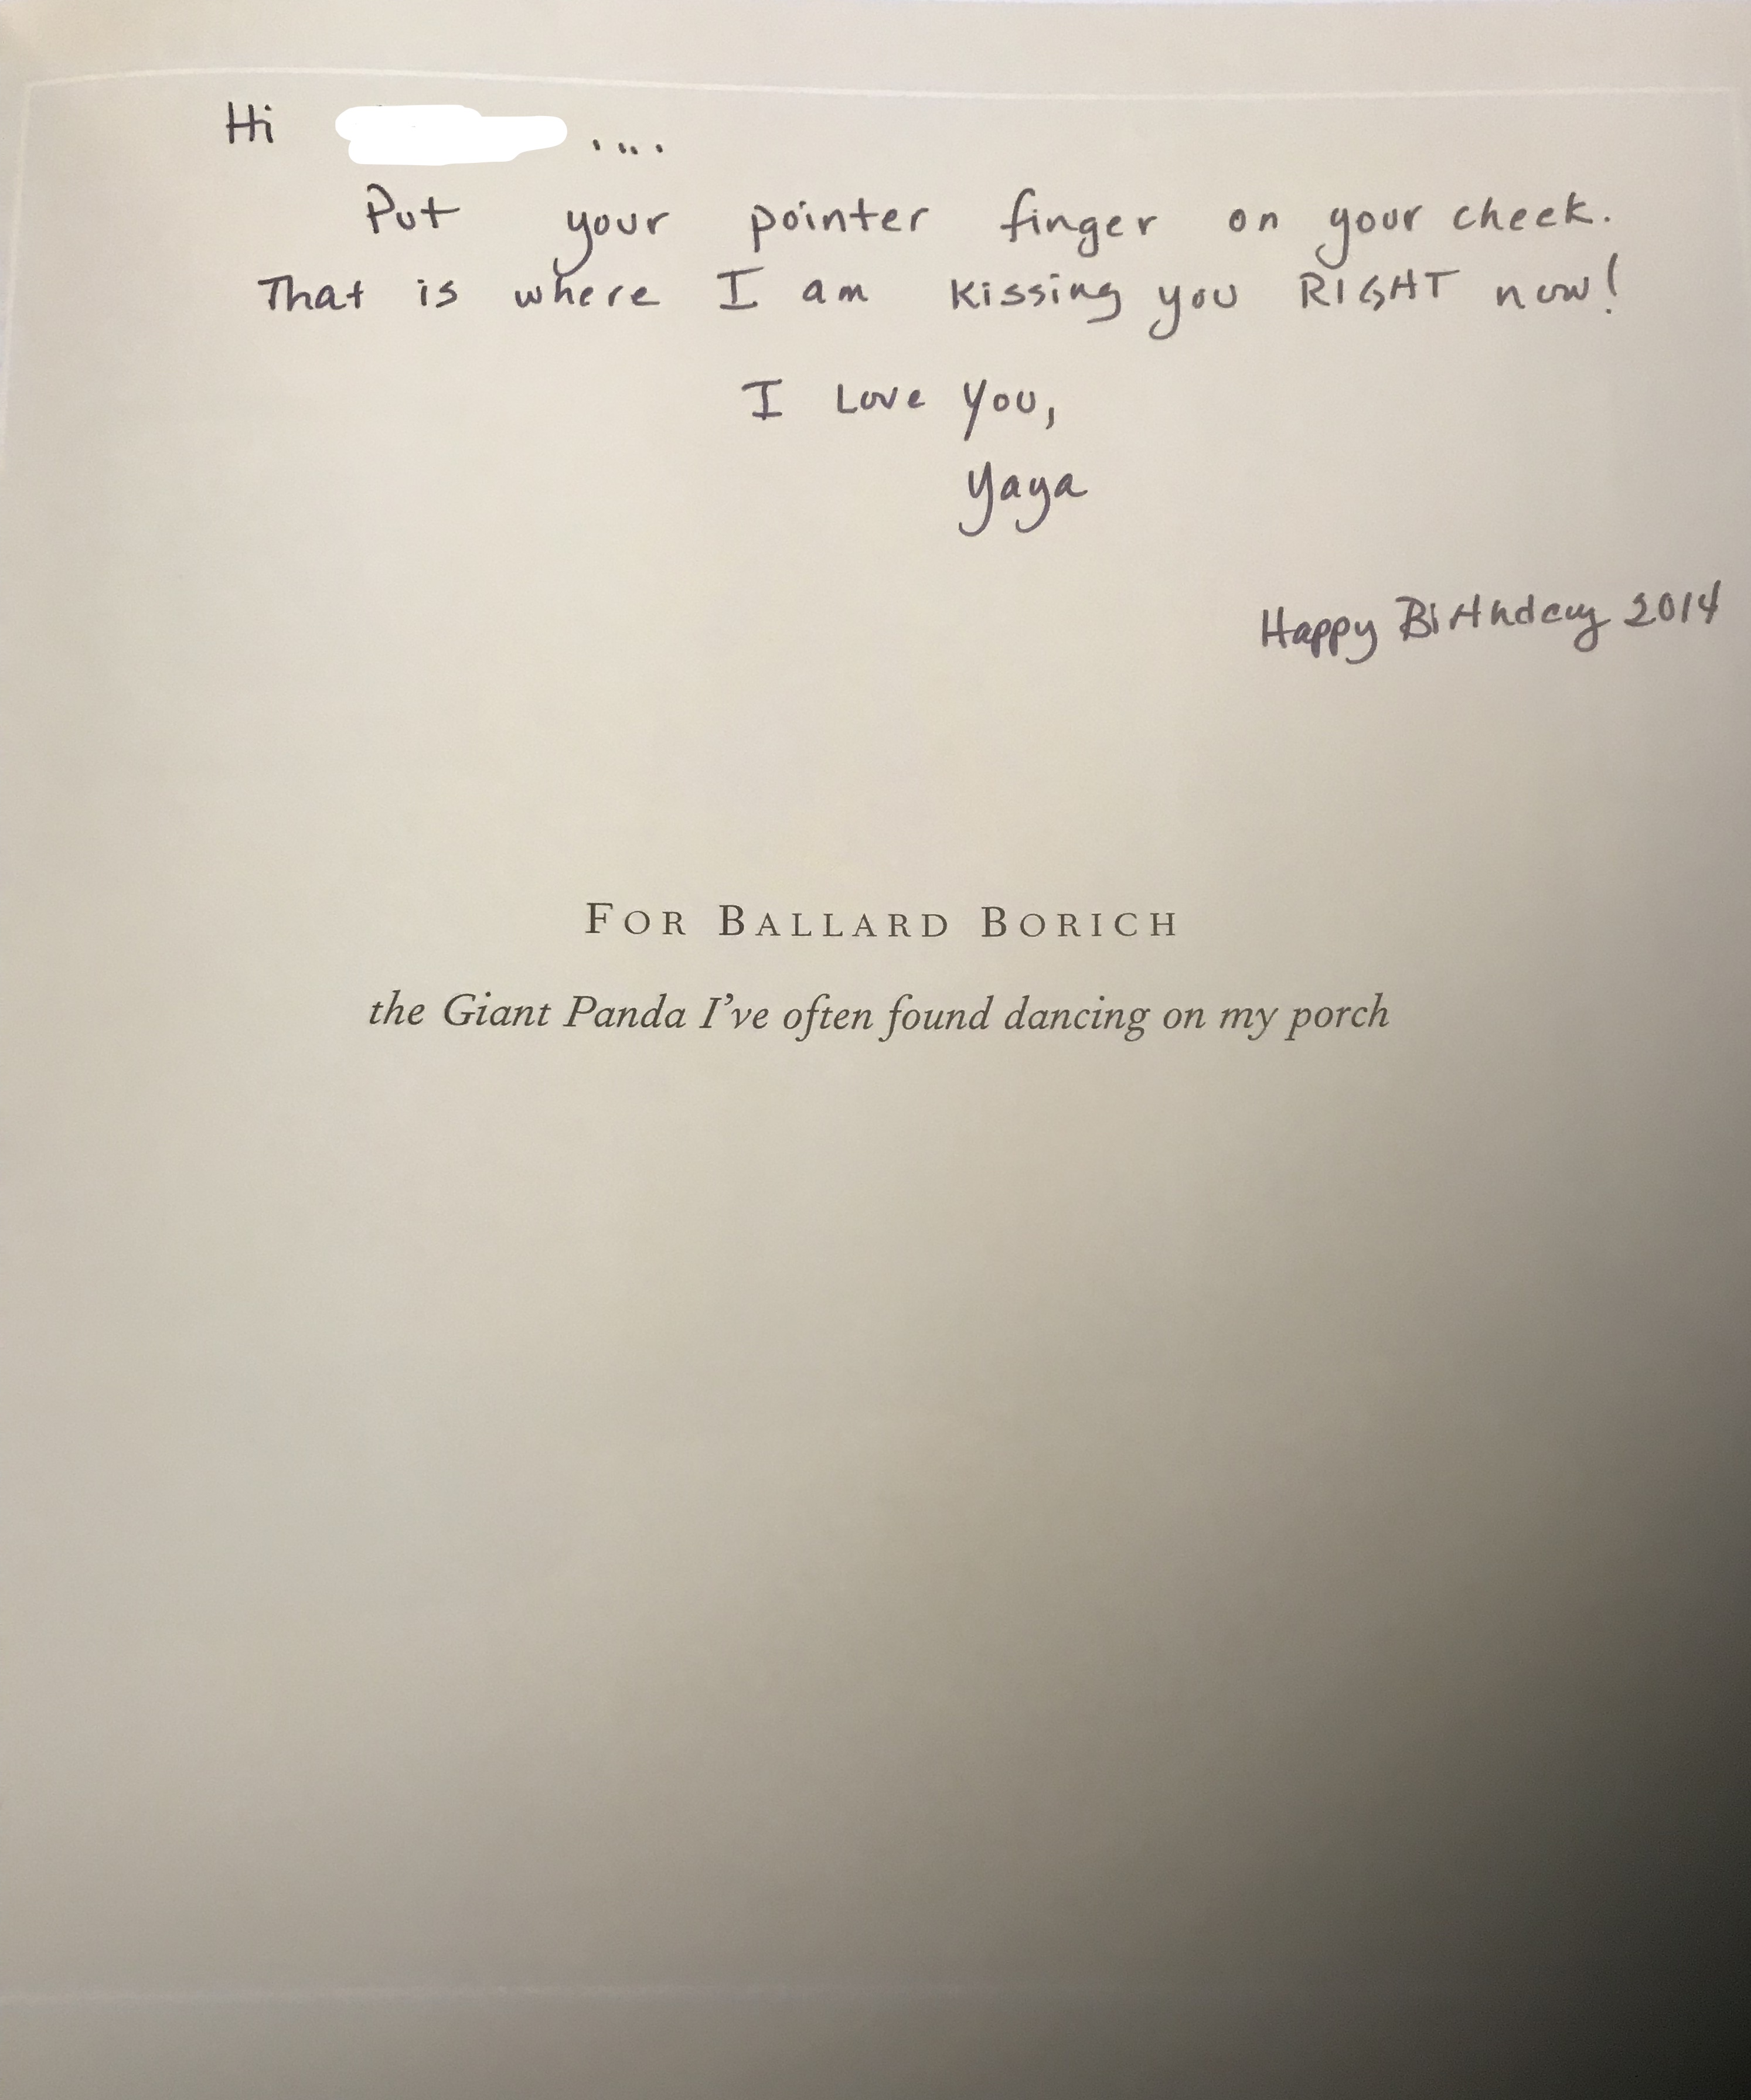 Hi ....
Put your pointer finger on your cheek.
That is where I am kissing you RIGHT now!
I Love you,
Yaya
Happy Birthday 2014
FOR BALLARD BORICH
the Giant Panda I've often found dancing on my porch